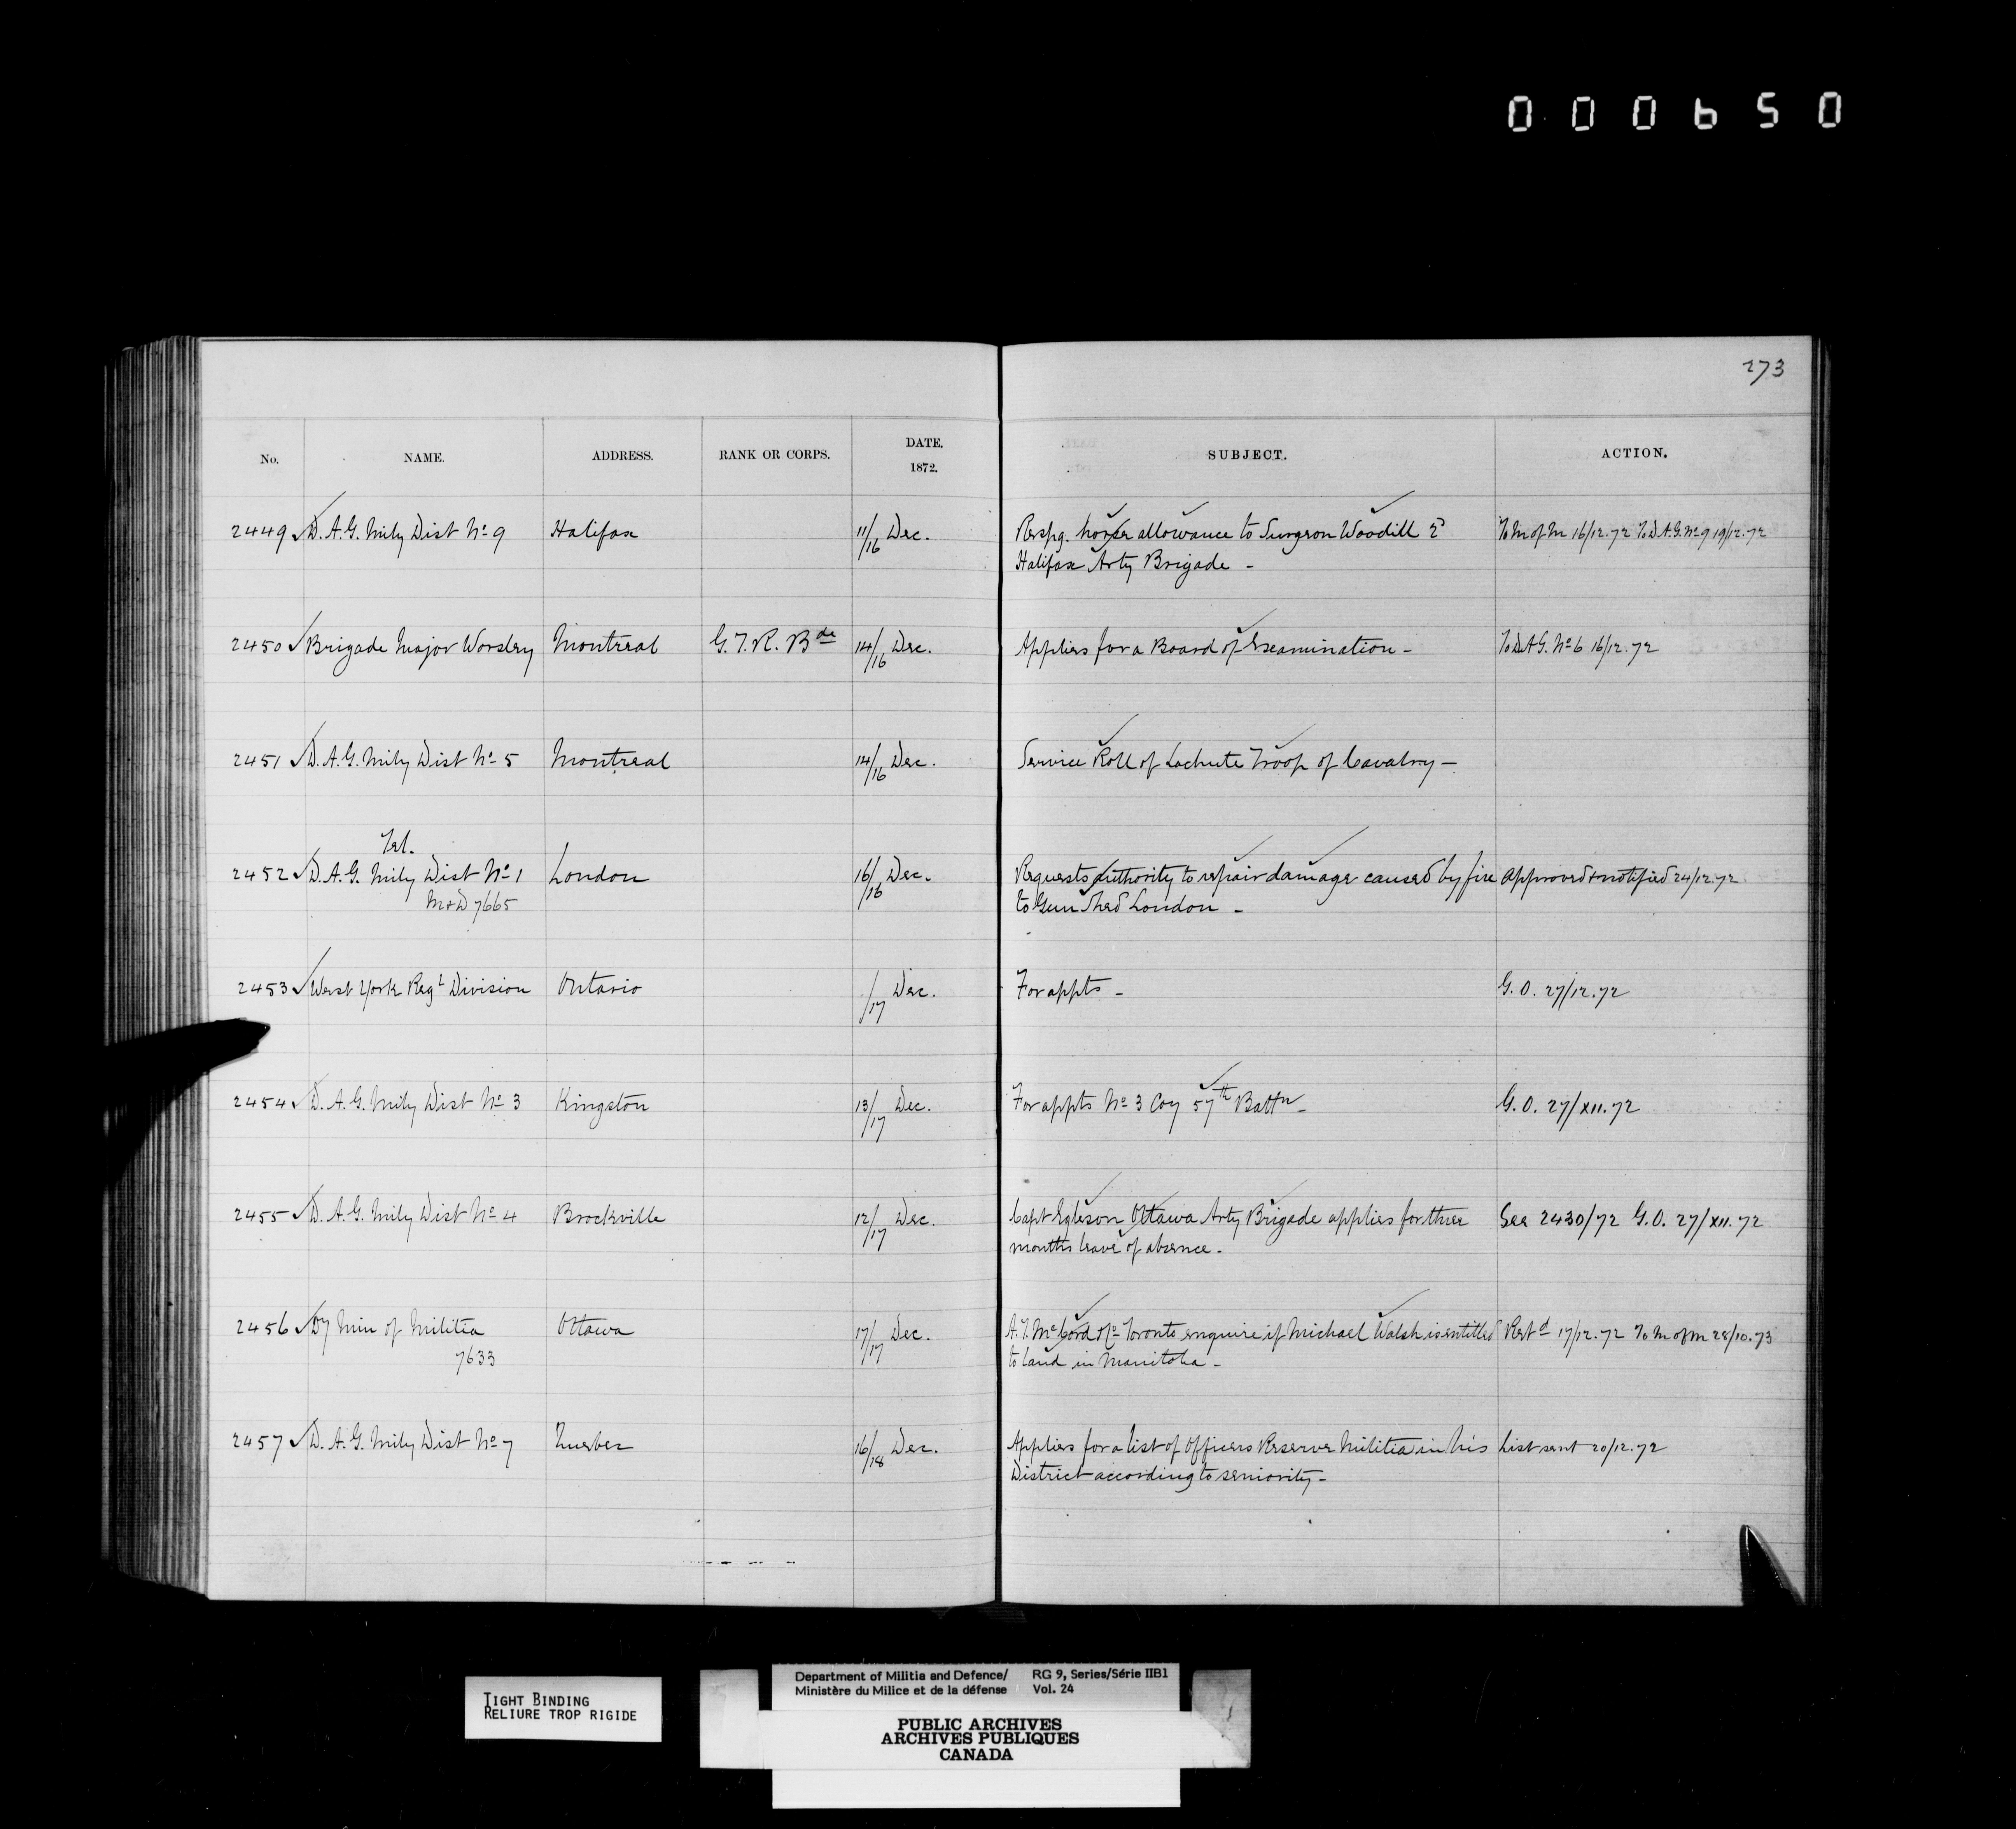 000650
273
No. NAME. ADDRESS. RANK OR CORPS. DATE. 1872. SUBJECT. ACTION.
2449 D. A. G. Mily Dist No 9 Halifax 11/16 Dec. Respg. horse allowance to Surgeon Woodill 2d To M of M 16/12.72 To D.A.G. No 9 19/12.72
Halifax Arty Brigade -
2450 Brigade Major Worsley Montreal G. T. R. Bde 14/16 Dec. Applies for a Board of Examination - To D.A.G. No 6 16/12.72
2451 D. A. G. Mily Dist No 5 Montreal 14/16 Dec. Service Roll of Lachute Troop of Cavalry -
Tel.
2452 D. A. G. Mily Dist No 1 London 16/16 Dec. Requests authority to repair damage caused by fire Approved & notified 24/12.72
M & D 7665 to Gun Shed London -
2453 West York Regl Division Ontario /17 Dec. For appts - G. O. 27/12.72
2454 D. A. G. Mily Dist No 3 Kingston 13/17 Dec. For appts No 3 Coy 57th Battn - G. O. 27/XII.72
2455 D. A. G. Mily Dist No 4 Brockville 12/17 Dec. Capt Egleson Ottawa Arty Brigade applies for three See 2430/72 G. O. 27/XII.72
months leave of absence -
2456 Dy Min of Militia Ottawa 17/17 Dec. A. T. McCord Toronto enquire if Michael Walsh is entitled Retd 17/12.72 To M of M 28/10.73
7633 to land in Manitoba -
2457 D. A. G. Mily Dist No 7 Quebec 16/18 Dec. Applies for a list of Officers Reserve Militia in his List sent 20/12.72
District according to seniority -
TIGHT BINDING
RELIURE TROP RIGIDE
Department of Militia and Defence/ RG 9, Series/Série IIB1
Ministère du Milice et de la défense Vol. 24
PUBLIC ARCHIVES
ARCHIVES PUBLIQUES
CANADA